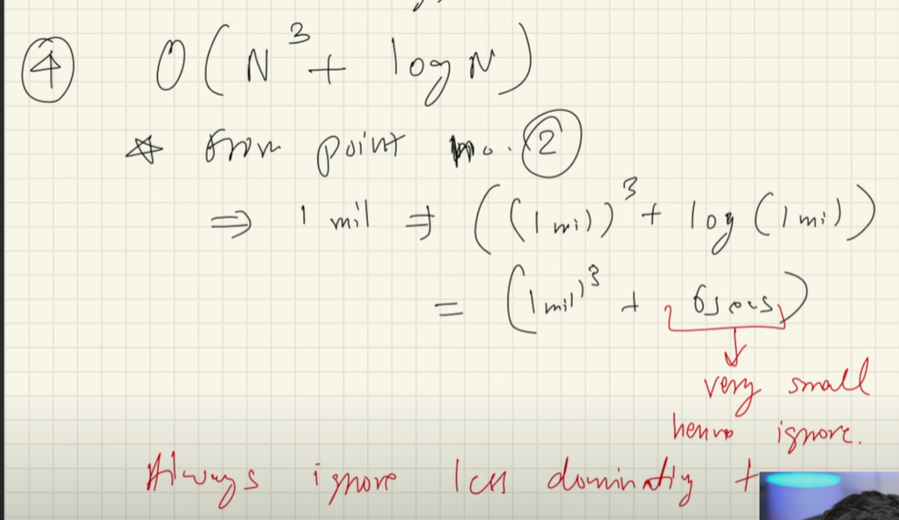 ④ O(N³ + log N)
☆ from point no. ②
⇒ 1 mil ⇒ ((1 mil)³ + log(1 mil))
= ((1 mil)³ + 6 secs)
very small
hence ignore.
Always ignore less dominating